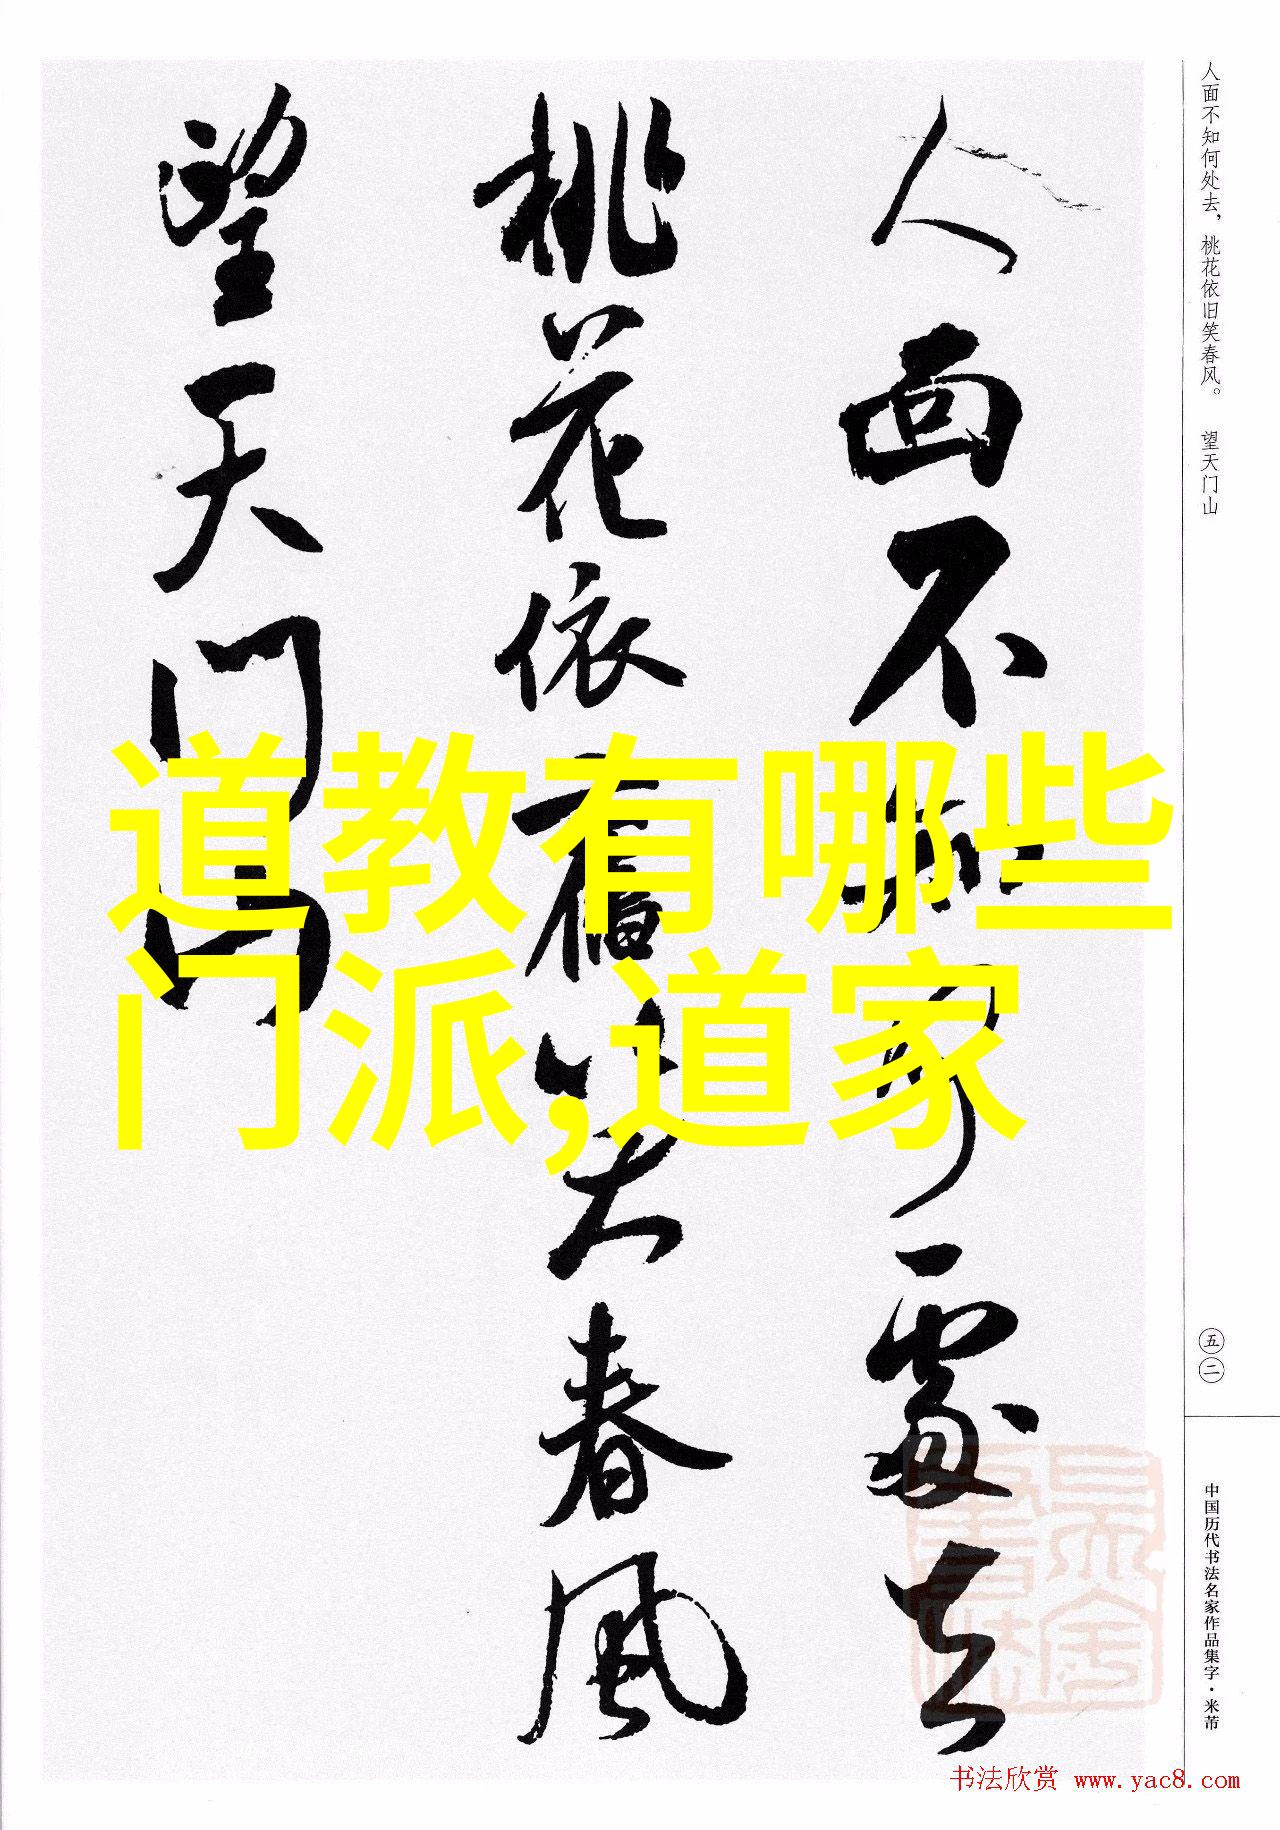 道教有哪些
门派,道家
人面不知何处去，桃花依旧笑春风。 望天门山
人面不知何處去
桃花依舊笑春風
望天门山
五二
中国历代书法名家作品集字·米芾
书法欣赏 www.yac8.com